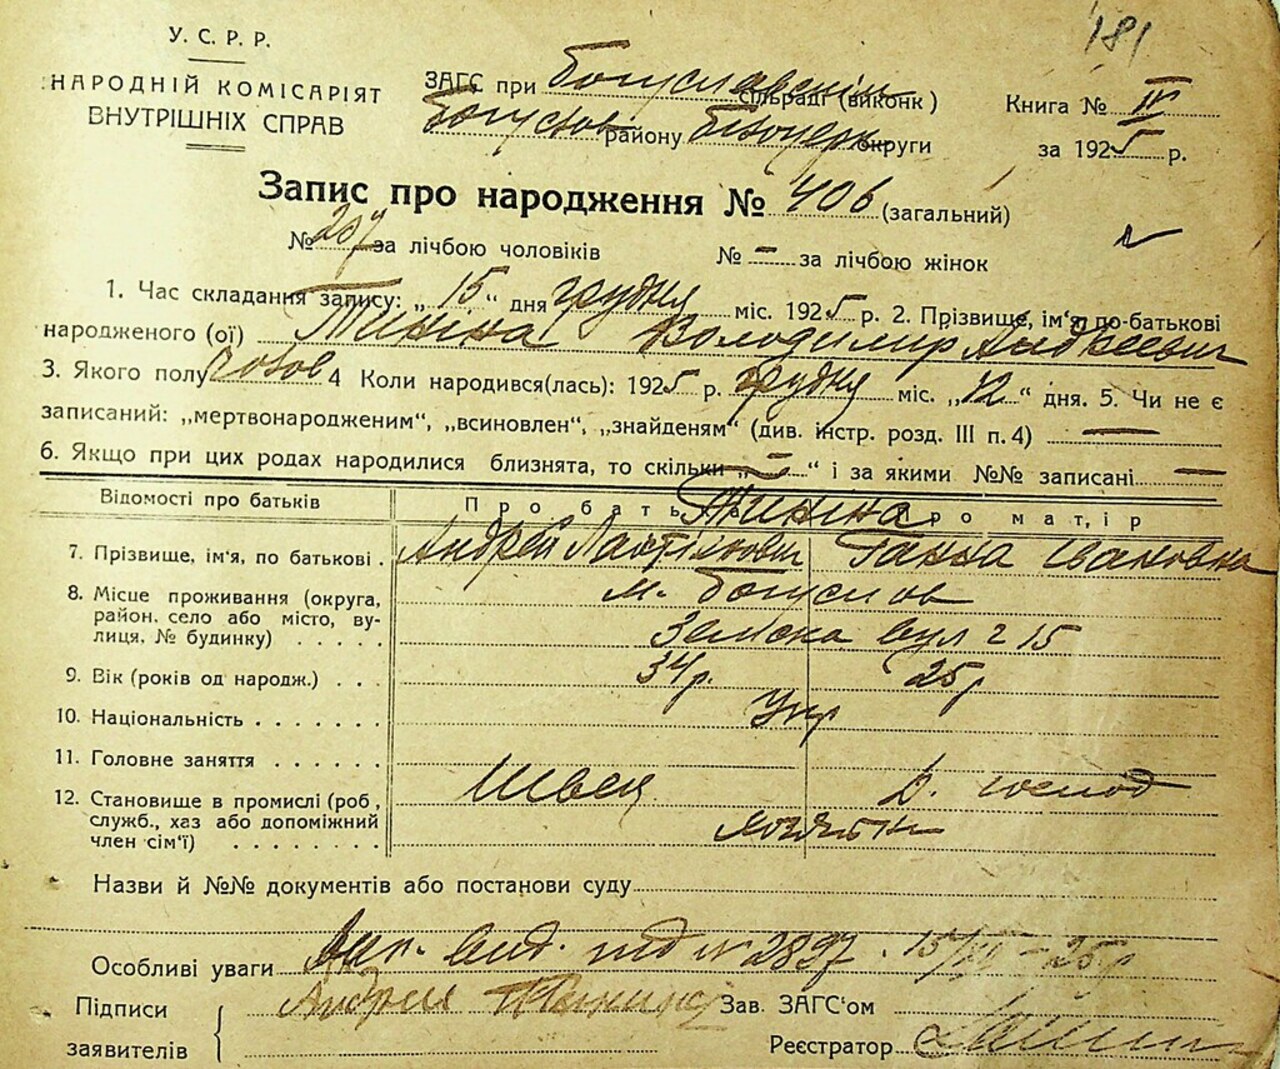 181
У. С. Р. Р.
НАРОДНІЙ КОМІСАРІЯТ
ВНУТРІШНІХ СПРАВ
ЗАГС при Богуславскім сільраді (виконк)
району округи
Книга № IV
за 1925 р.
Запис про народження № 406 (загальний)
№ 207 за лічбою чоловіків № — за лічбою жінок
1. Час складання запису: „15“ дня грудня міс. 1925 р. 2. Прізвище, ім'я, по-батькові
народженого (ої) Тиніна Володимир Андреевич
3. Якого полу чолов 4 Коли народився(лась): 1925 р. грудня міс. „12“ дня. 5. Чи не є
записаний: „мертвонародженим“, „всиновлен“, „знайденям“ (див. інстр. розд. III п. 4) —
6. Якщо при цих родах народилися близнята, то скільки „—“ і за якими №№ записані —
Відомості про батьків Про бать Тиніна ро матір
7. Прізвище, ім'я, по батькові . Андрей Ганна Івановна
8. Місце проживання (округа, м. Богуслов
район, село або місто, ву-
лиця, № будинку) . . . . Земска вул 15
9. Вік (років од народж.) . . . 34р. 25р
10. Національність . . . . . . . Укр
11. Головне заняття . . . . . . Швец Д. господ
12. Становище в промислі (роб,
служб., хаз або допоміжний
член сім'ї) . . . . . . . .
Назви й №№ документів або постанови суду
Особливі уваги вид. № 2897. 15/XII-25р
Підписи Андрей Зав. ЗАГС'ом
заявителів Реєстратор